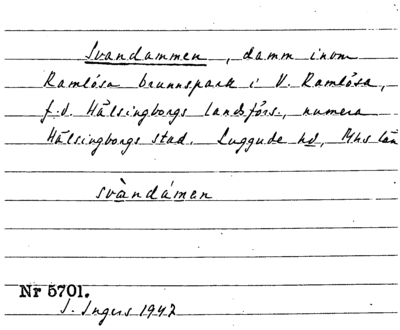 Svandammen, damm inom
Ramlösa brunnspark i V. Ramlösa,
f.d. Hälsingborgs landsförs., numera
Hälsingborgs stad. Luggude hd, Mhs län
svàndámen
Nr 5701.
I. Ingers 1942